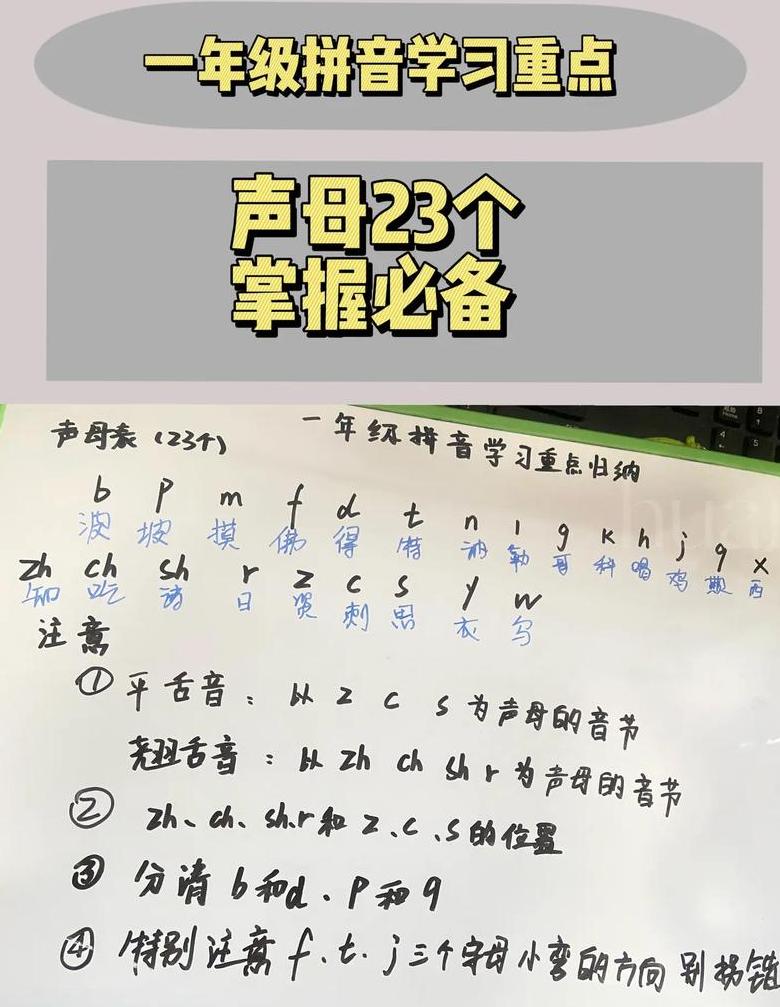 一年级拼音学习重点
声母23个
掌握必备
声母表(23个) 一年级拼音学习重点归纳
b p m f d t n l g k h j q x
波 坡 摸 佛 得 特 讷 勒 哥 科 喝 鸡 欺 西
zh ch sh r z c s y w
知 吃 诗 日 资 刺 思 衣 乌
注意
① 平舌音：以 z c s 为声母的音节
翘舌音：以 zh ch sh r 为声母的音节
② zh、ch、sh、r和z、c、s的位置
③ 分清b和d、p和q
④ 特别注意f、t、j三个字母小弯的方向别拐错